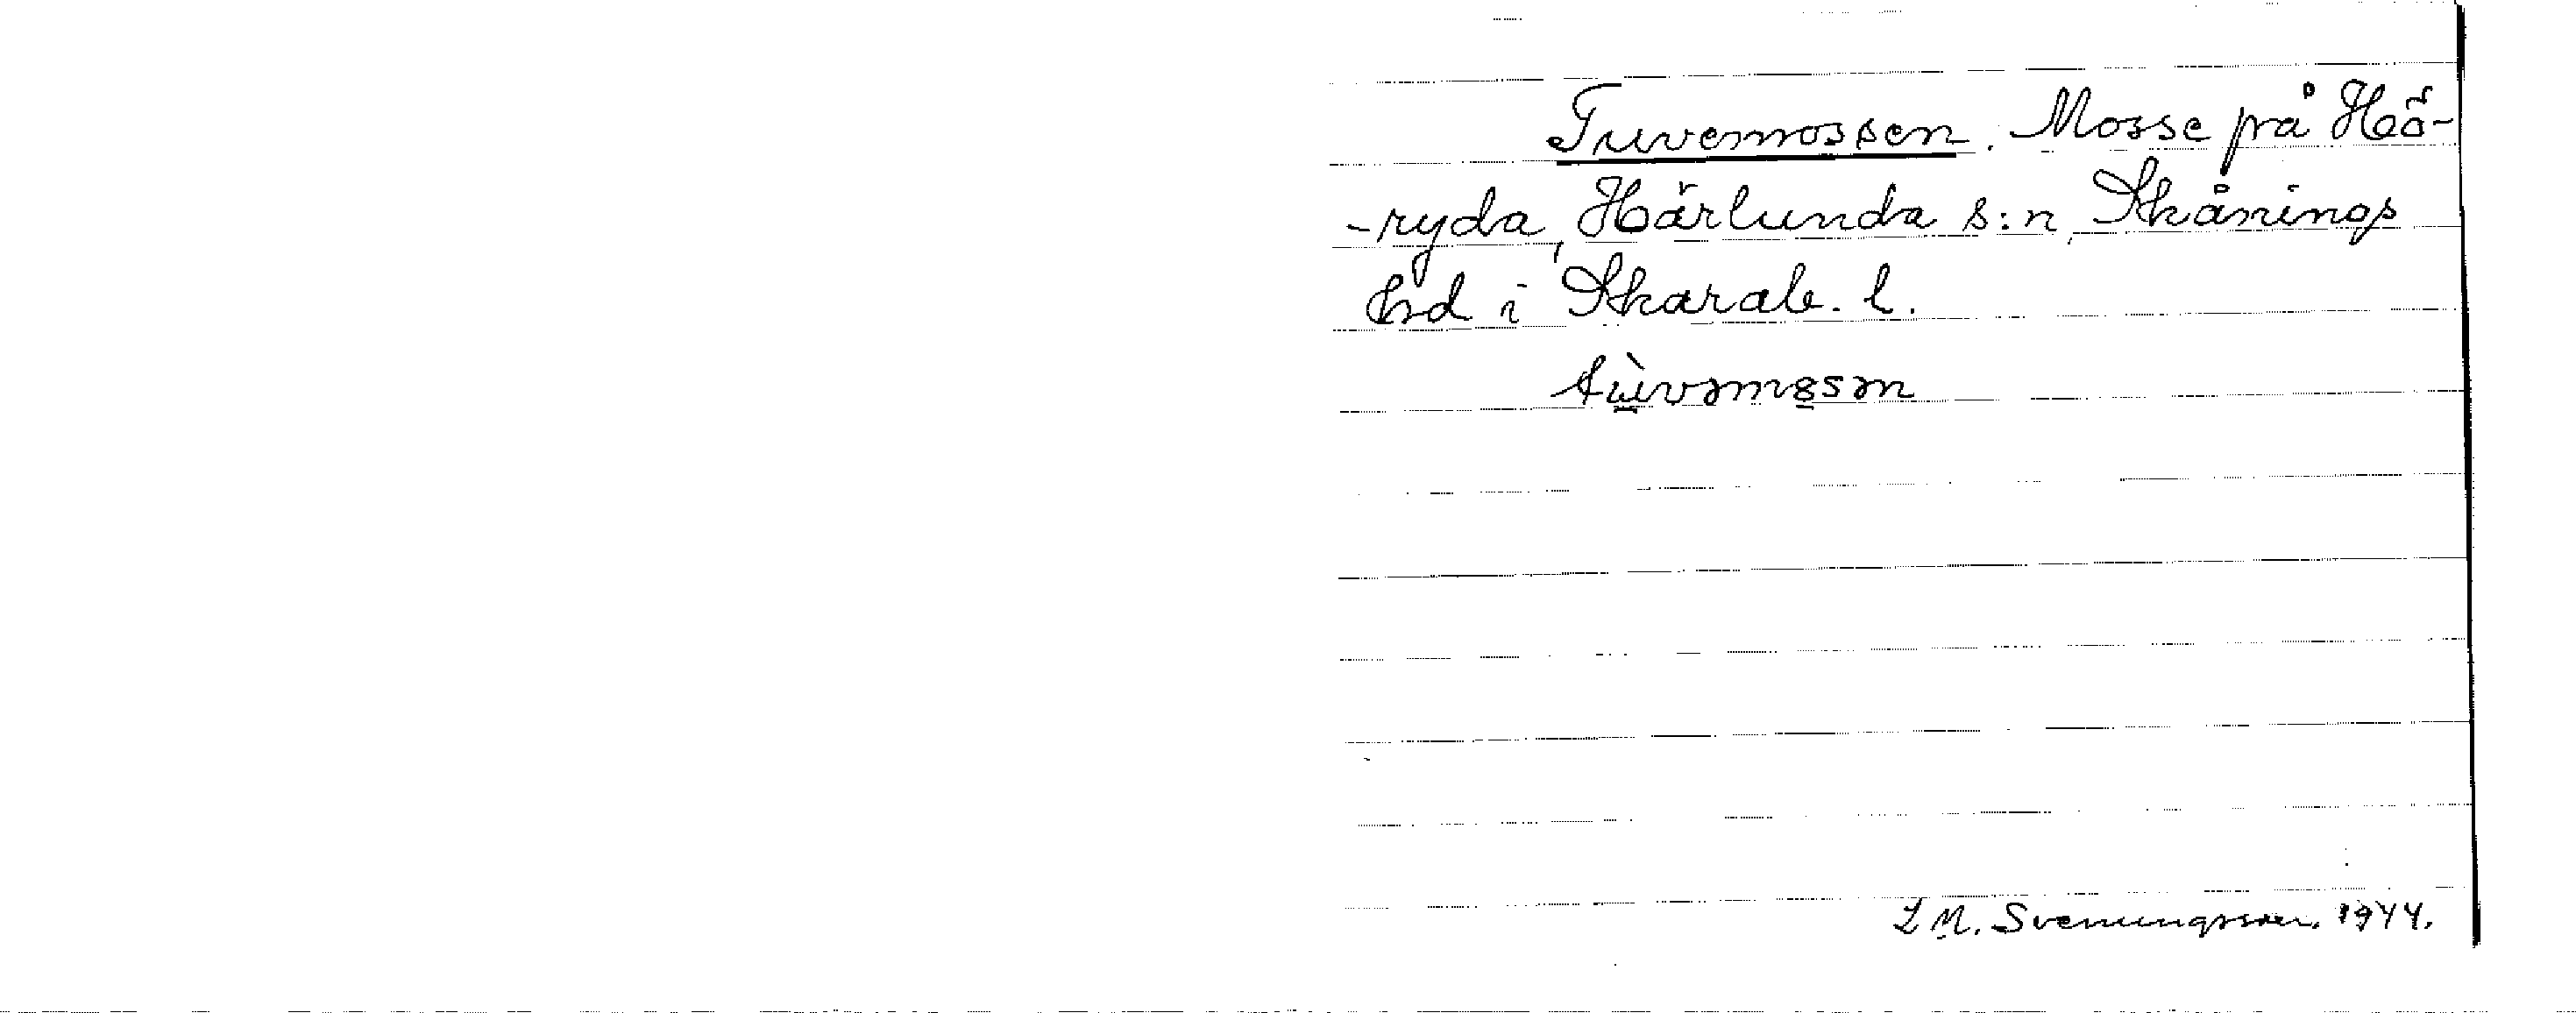 Tuvemossen. Mosse på Hö-
-ryda, Härlunda s:n, Skånings
hrd i Skarab. l.
L M. Svenungsson. 1944.